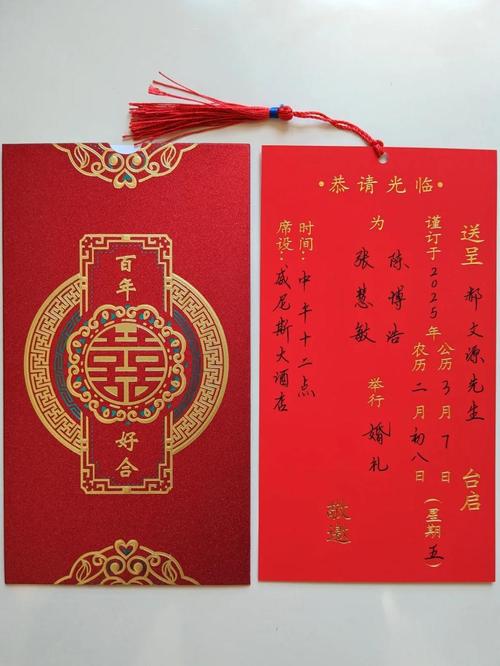 百年
好合
·恭请光临·
送呈 郝文源先生 台启
谨订于2025年 公历3月7日 农历二月初八日 (星期五)
为 陈博浩 张慧敏 举行 婚礼
敬邀
时间：中午十二点
席设：威尼斯大酒店